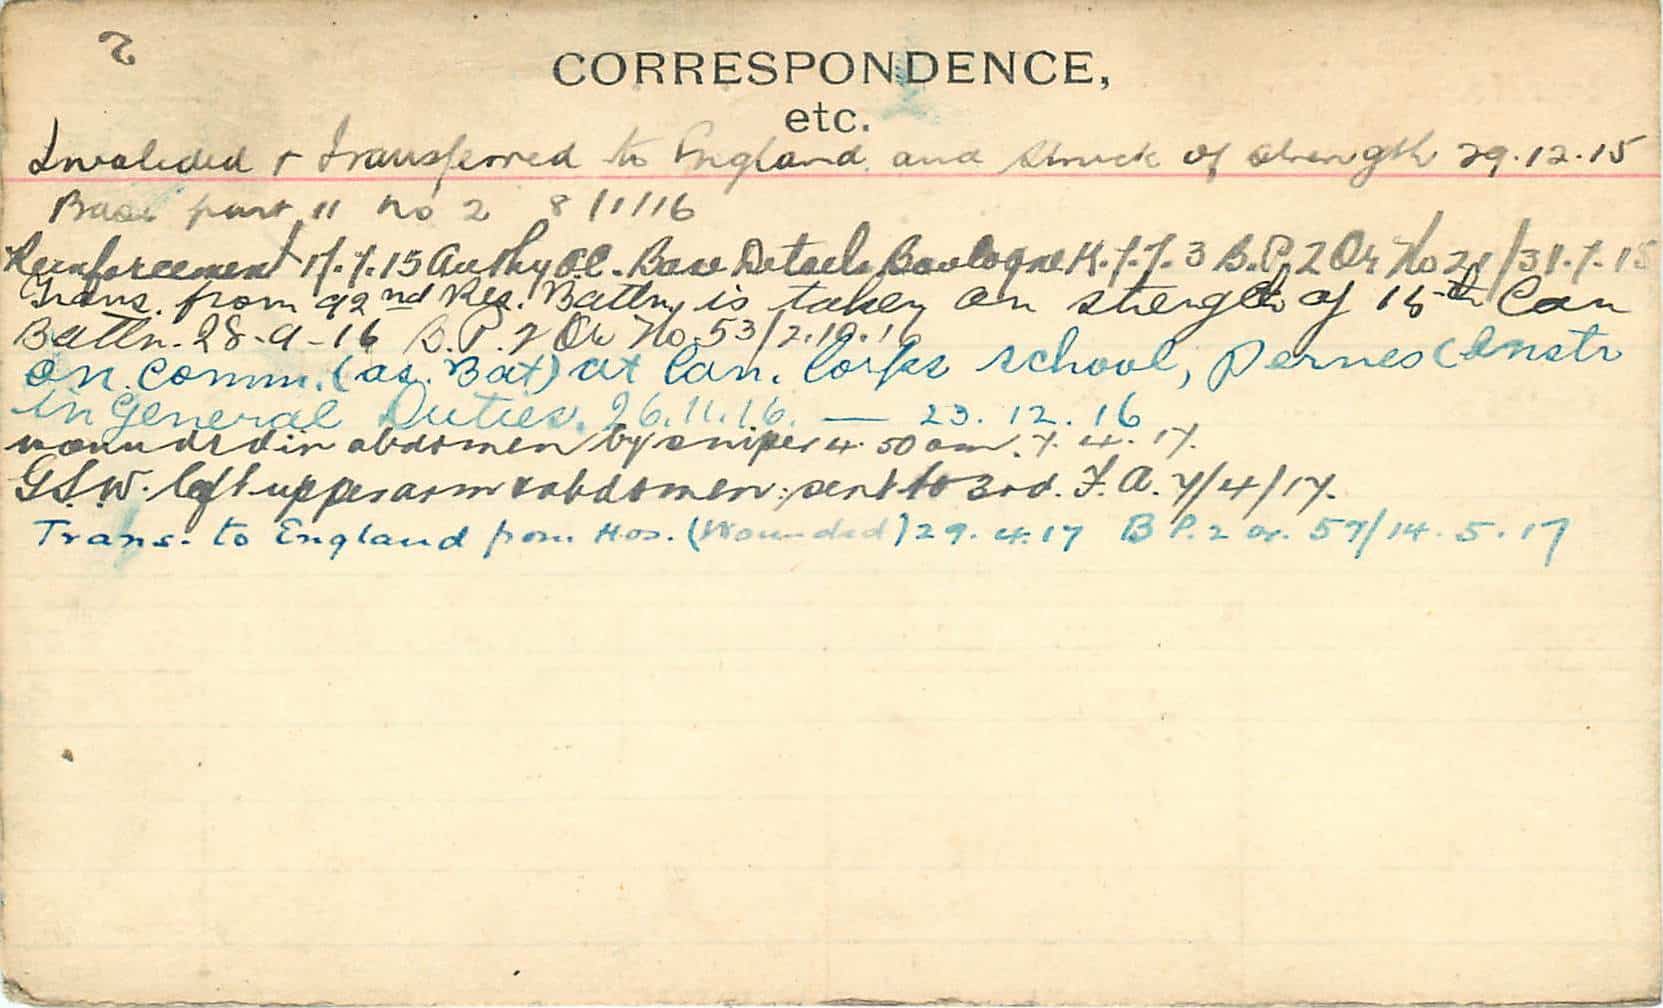 2
CORRESPONDENCE,
etc.
Invalided + Transferred to England and struck of strength 29.12.15
Base part 11 no 2 8/1/16
Reinforcement 17.7.15 Authy O.C. Base Details Boulogne K.7.7.3 B.P.2 Or No 21/31.7.15
Trans. from 92nd Res. Battn, is taken on strength of 15th Can
Battn. 28-9-16 B.P.2 Or No 53/2.10.16
on comm. (as. Bat) at Can. Corps school, Pernes (Instr
in General Duties. 26.11.16. — 23.12.16
wounded in abdomen by sniper 4.50 am. 7.4.17.
G.S.W. left upper arm & abdomen; sent to 3rd. F.A. 7/4/17.
Trans. to England from Hos. (Wounded) 29.4.17 B P.2 or. 57/14.5.17